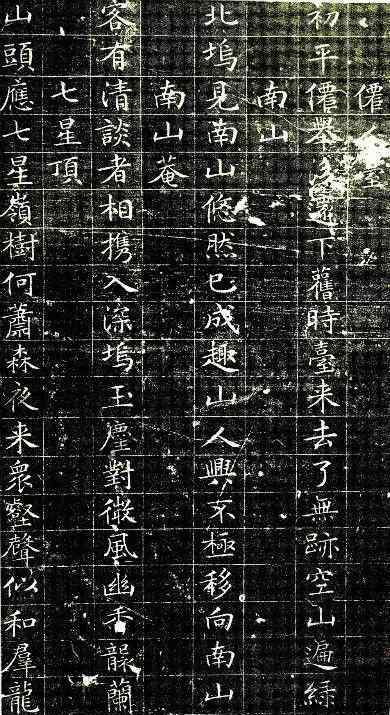 僊
初平僊舉下舊時臺来去了無跡空山遍綠
南山
北塢見南山悠然已成趣山人興不極移向南山
南山菴
客有清談者相携入深塢玉麈對微風幽香蘭
七星頂
山頭應七星嶺樹何蕭森夜来衆壑聲似和羣龍